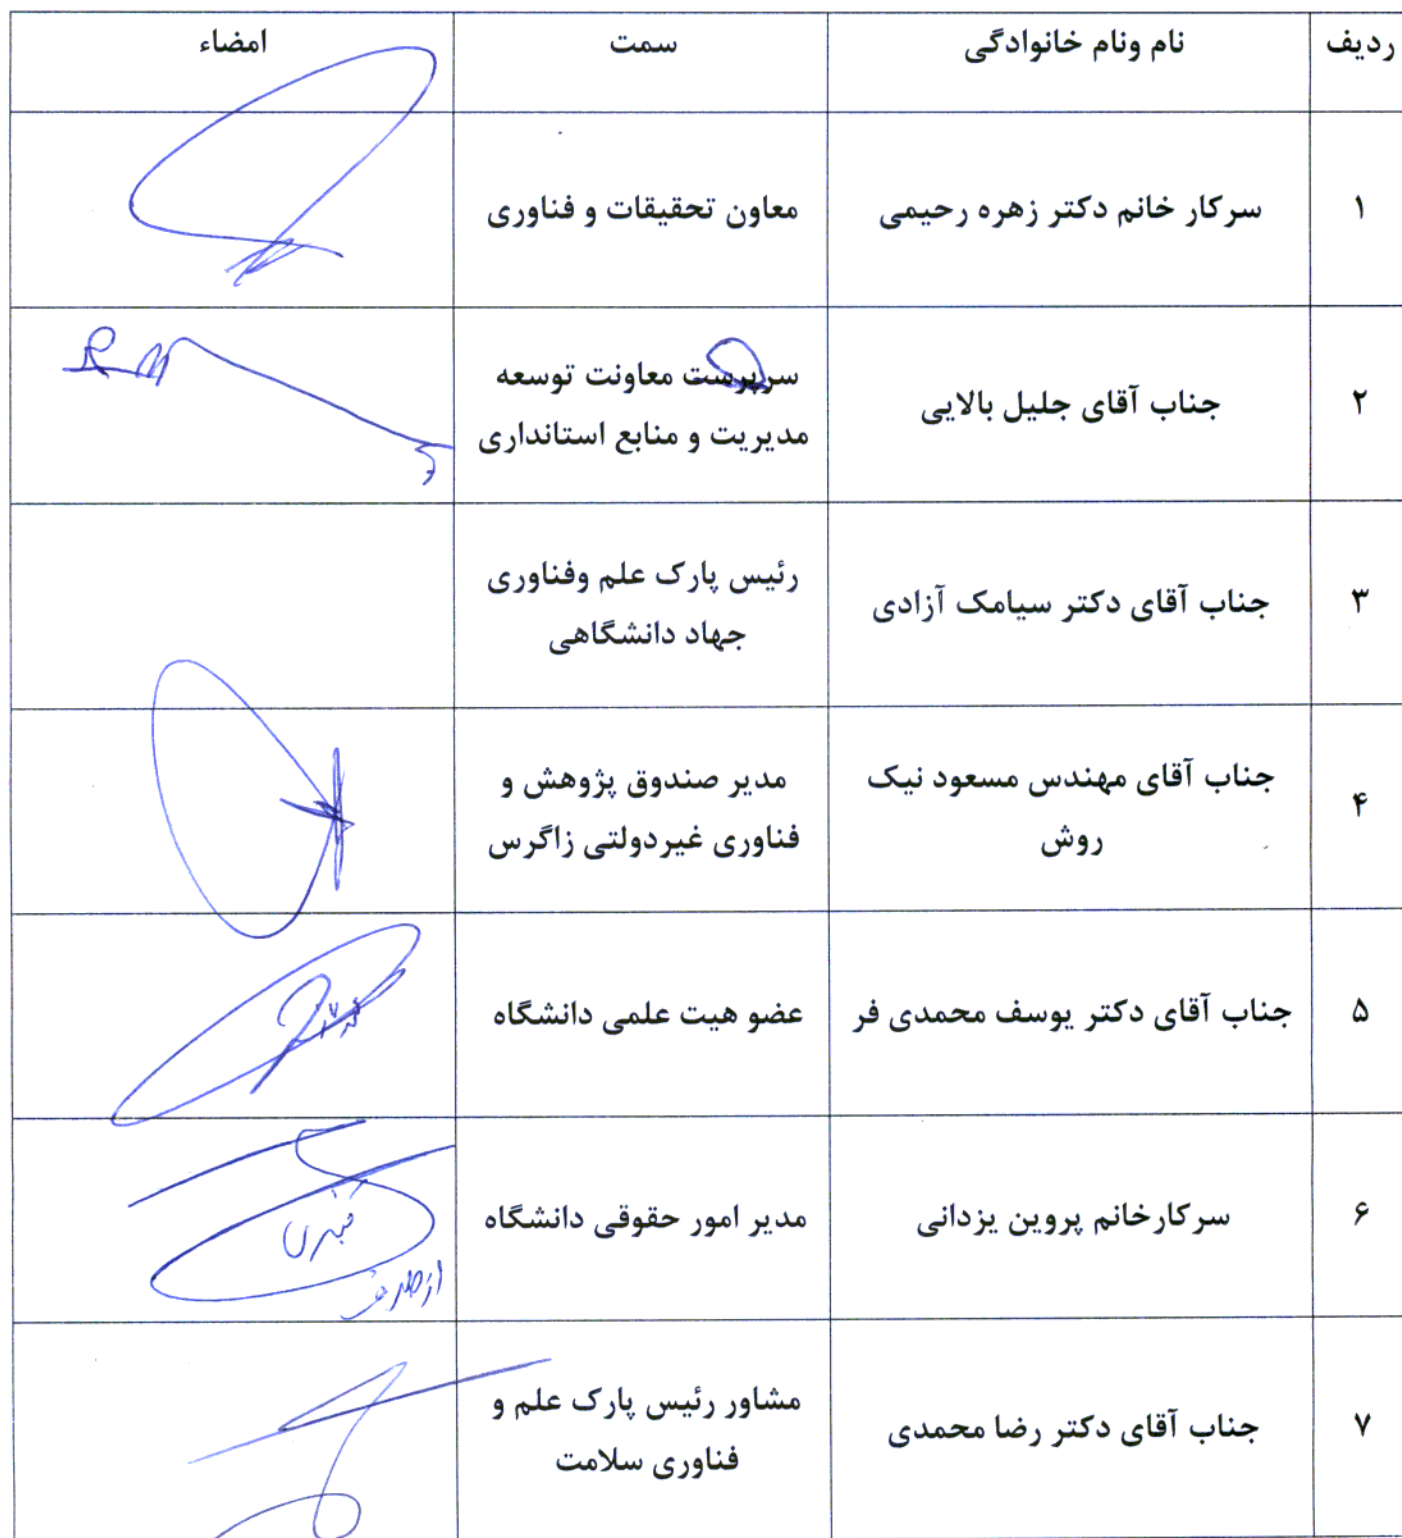 ردیف نام ونام خانوادگی سمت امضاء
۱ سرکار خانم دکتر زهره رحیمی معاون تحقیقات و فناوری
۲ جناب آقای جلیل بالایی سرپرست معاونت توسعه
مدیریت و منابع استانداری
۳ جناب آقای دکتر سیامک آزادی رئیس پارک علم وفناوری
جهاد دانشگاهی
۴ جناب آقای مهندس مسعود نیک مدیر صندوق پژوهش و
روش فناوری غیردولتی زاگرس
۵ جناب آقای دکتر یوسف محمدی فر عضو هیت علمی دانشگاه
۶ سرکارخانم پروین یزدانی مدیر امور حقوقی دانشگاه
از طرف
۷ جناب آقای دکتر رضا محمدی مشاور رئیس پارک علم و
فناوری سلامت